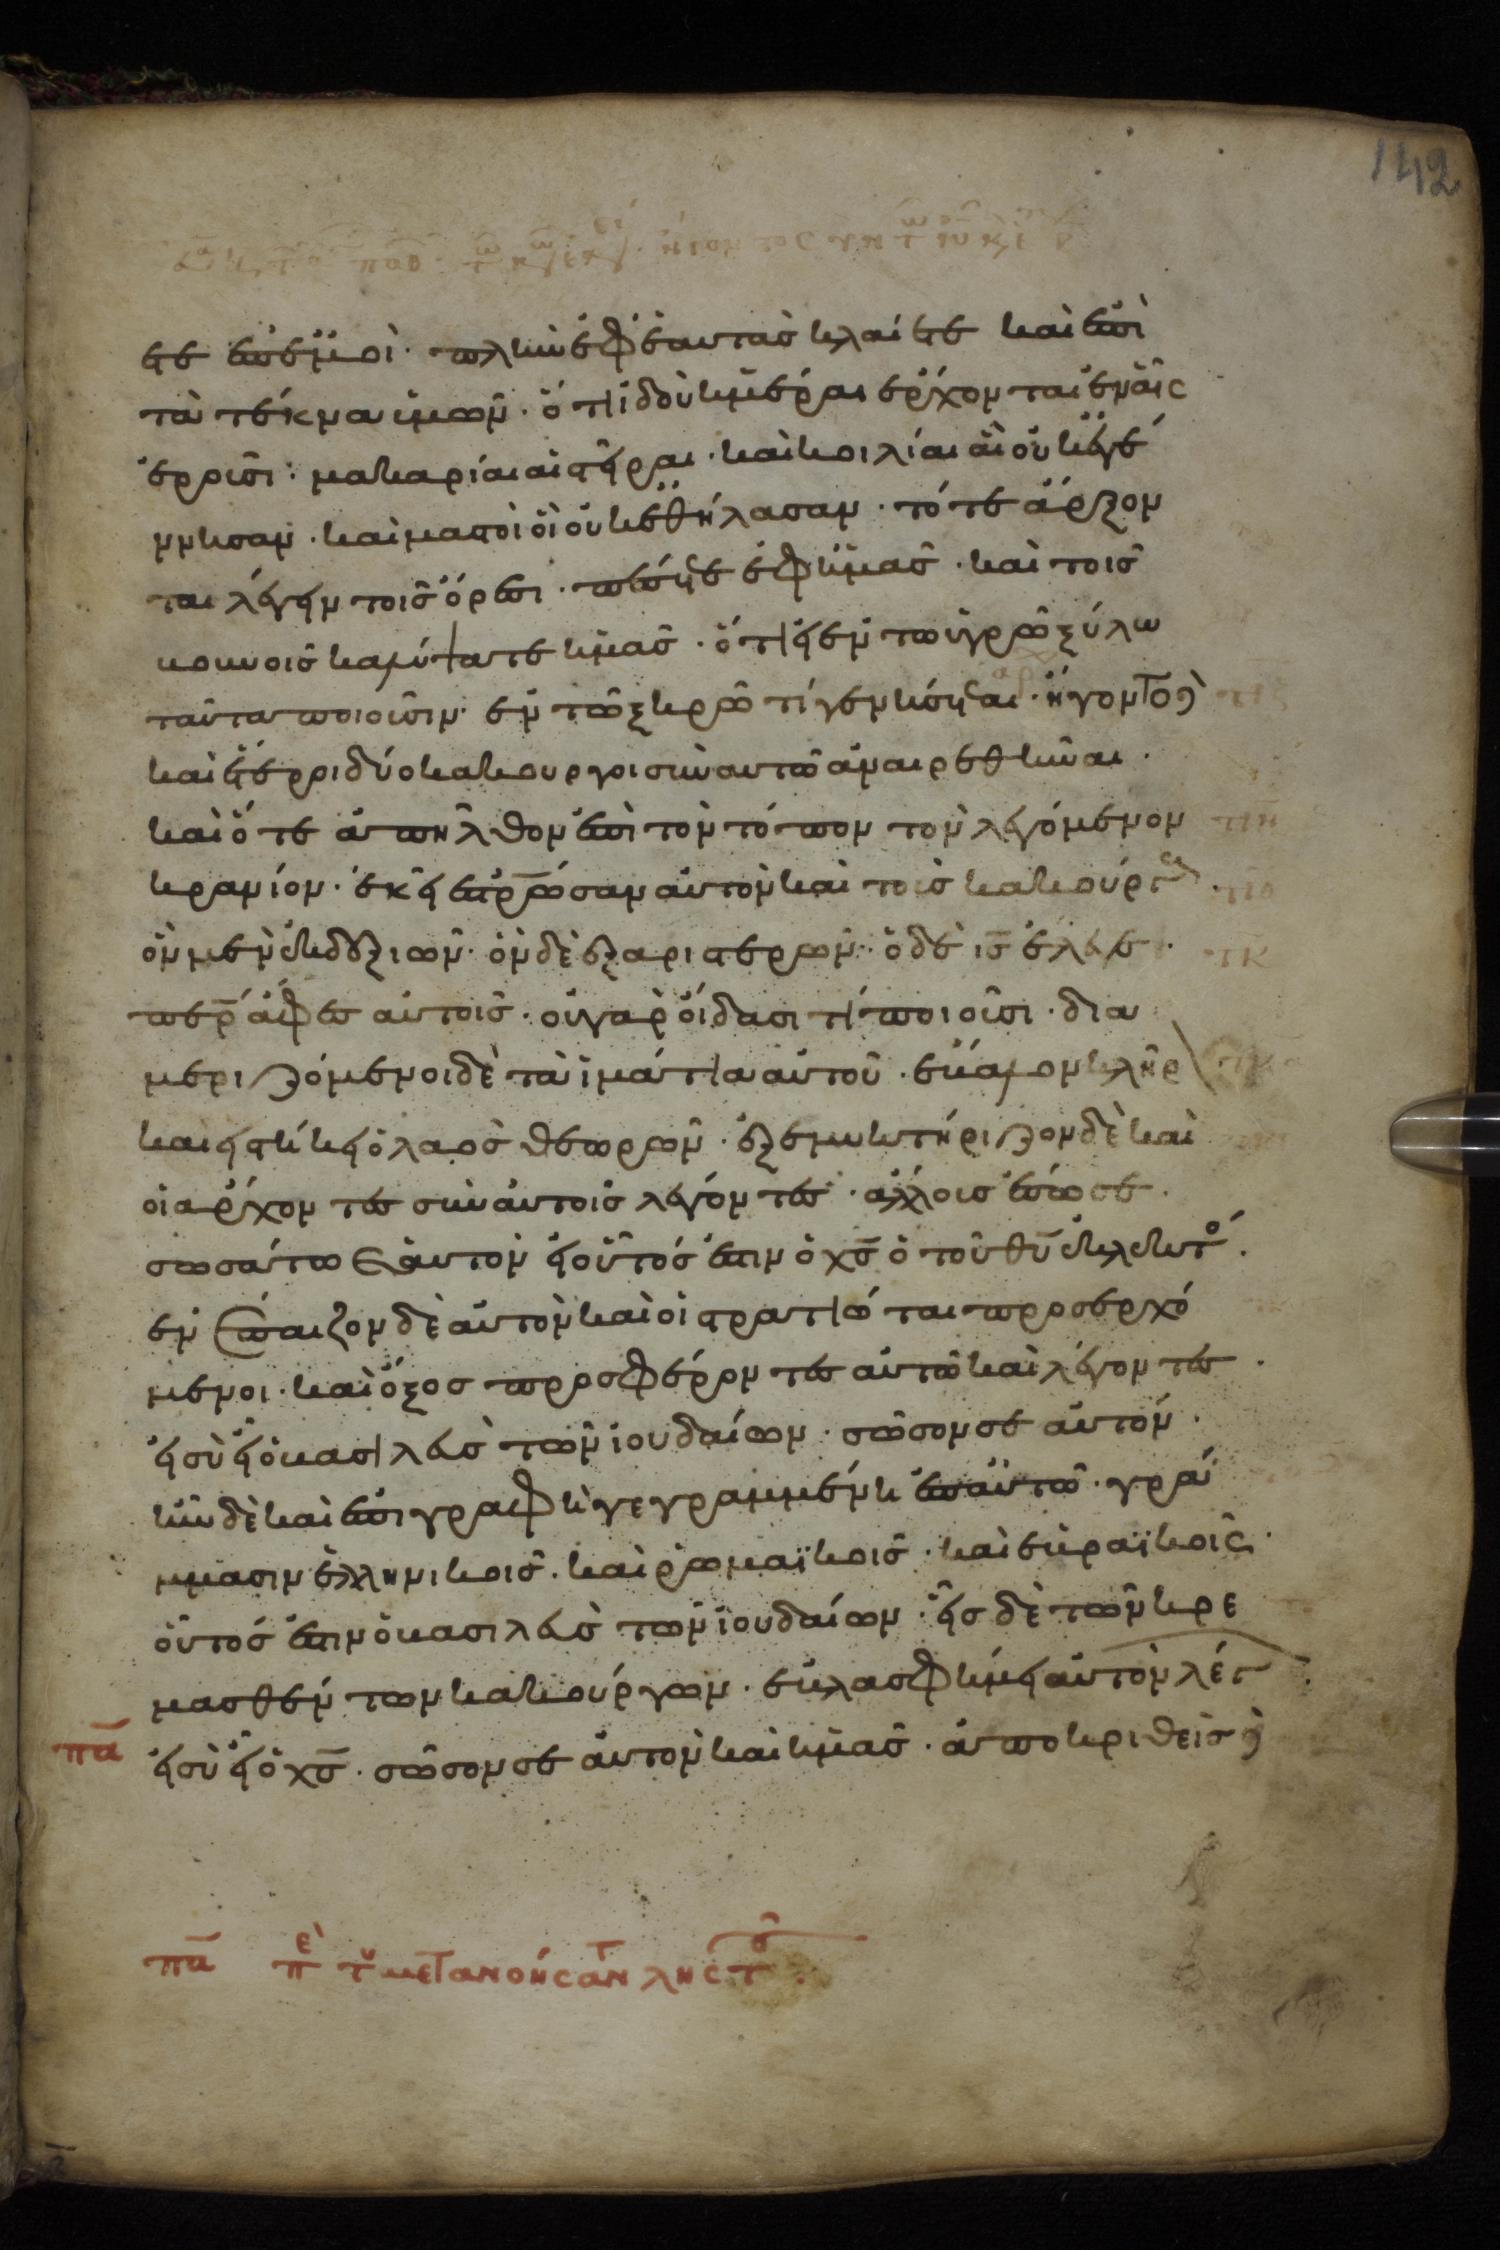 142
τε ἐπ' ἐμοὶ· πλὴν ἐφ' ἑαυτὰσ κλαίετε καὶ ἐπὶ
τὰ τέκνα ὑμῶν· ὅτι ἰδοὺ ἡμέραι ἔρχονται ἐν αἷς
ἐροῦσι· μακαρίαι αἱ στεῖραι· καὶ κοιλίαι αἳ οὐκ ἐγέ
ννησαν· καὶ μαστοὶ οἳ οὐκ ἐθήλασαν· τότε ἄρξον
ται λέγειν τοῖσ ὄρεσι· πέσετε ἐφ' ἡμᾶσ· καὶ τοῖσ
βουνοῖσ καλύψατε ἡμᾶσ· ὅτι εἰ ἐν τῶ ὑγρῶ ξύλω
ταῦτα ποιοῦσιν· ἐν τῶ ξηρῶ τί γένηται· ἤγοντο δὲ
καὶ ἕτεροι δύο κακοῦργοι σὺν αὐτῶ ἀναιρεθῆναι·
καὶ ὅτε ἀπῆλθον ἐπὶ τὸν τόπον τὸν λεγόμενον
κρανίον· ἐκεῖ ἐσταύρωσαν αὐτὸν καὶ τοὺσ κακούργ
ὃν μὲν ἐκ δεξιῶν· ὃν δὲ ἐξ ἀριστερῶν· ὁ δὲ ισ ἔλεγε·
περ ἄφεσ αὐτοῖσ· οὐ γὰρ οἴδασι τί ποιοῦσι· δια
μεριζόμενοι δὲ τὰ ἱμάτια αὐτοῦ· ἔβαλον κλῆρ
καὶ εἱστήκει ὁ λαὸσ θεωρῶν· ἐξεμυκτήριζον δὲ καὶ
οἱ ἄρχοντεσ σὺν αὐτοῖσ λέγοντεσ· ἄλλουσ ἔσωσε·
σωσάτω ἑαυτὸν εἰ οὗτόσ ἐστιν ὁ χσ ὁ τοῦ θυ ἐκλεκτό·
ἐνέπαιζον δὲ αὐτὸν καὶ οἱ στρατιῶται προσερχό
μενοι· καὶ ὄξοσ προσφέροντεσ αὐτῶ καὶ λέγοντεσ·
εἰ σὺ εἶ ὁ βασιλεὺσ τῶν ἰουδαίων· σῶσον σεαυτόν·
ἦν δὲ καὶ ἐπιγραφὴ γεγραμμένη ἐπ' αὐτῶ· γρά
μμασιν ἑλληνικοῖσ· καὶ ῥωμαϊκοῖσ· καὶ ἑβραϊκοῖς·
οὗτόσ ἐστιν ὁ βασιλεὺσ τῶν ἰουδαίων· εἷσ δὲ τῶν κρε
μασθέντων κακούργων· ἐβλασφήμει αὐτὸν λέγ
πα εἰ σὺ εἶ ὁ χσ· σῶσον σεαυτὸν καὶ ἡμᾶσ· ἀποκριθεὶσ δὲ
πα πε τοῦ μετανοήσαντ λῃστοῦ·